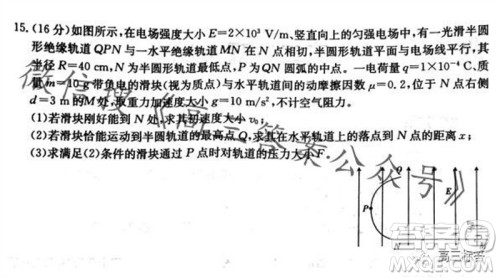 15.(16分)如图所示,在电场强度大小E=2×10³ V/m、竖直向上的匀强电场中,有一光滑半圆
形绝缘轨道QPN与一水平绝缘轨道MN在N点相切,半圆形轨道平面与电场线平行,其
半径R=40 cm,N为半圆形轨道最低点,P为QN圆弧的中点。一电荷量q=1×10⁻⁴ C、质
量m=10 g带负电的滑块(视为质点)与水平轨道间的动摩擦因数μ=0.2,位于N点右侧
d=3 m的M处,取重力加速度大小g=10 m/s²,不计空气阻力。
(1)若滑块刚好能到N处,求其初速度大小v₀;
(2)若滑块恰能运动到半圆轨道的最高点Q,求其在水平轨道上的落点到N点的距离x;
(3)求满足(2)条件的滑块通过P点时对轨道的压力大小F。
微信搜《高三答案公众号》
Q
E
P
答案圈
MXQE.COM